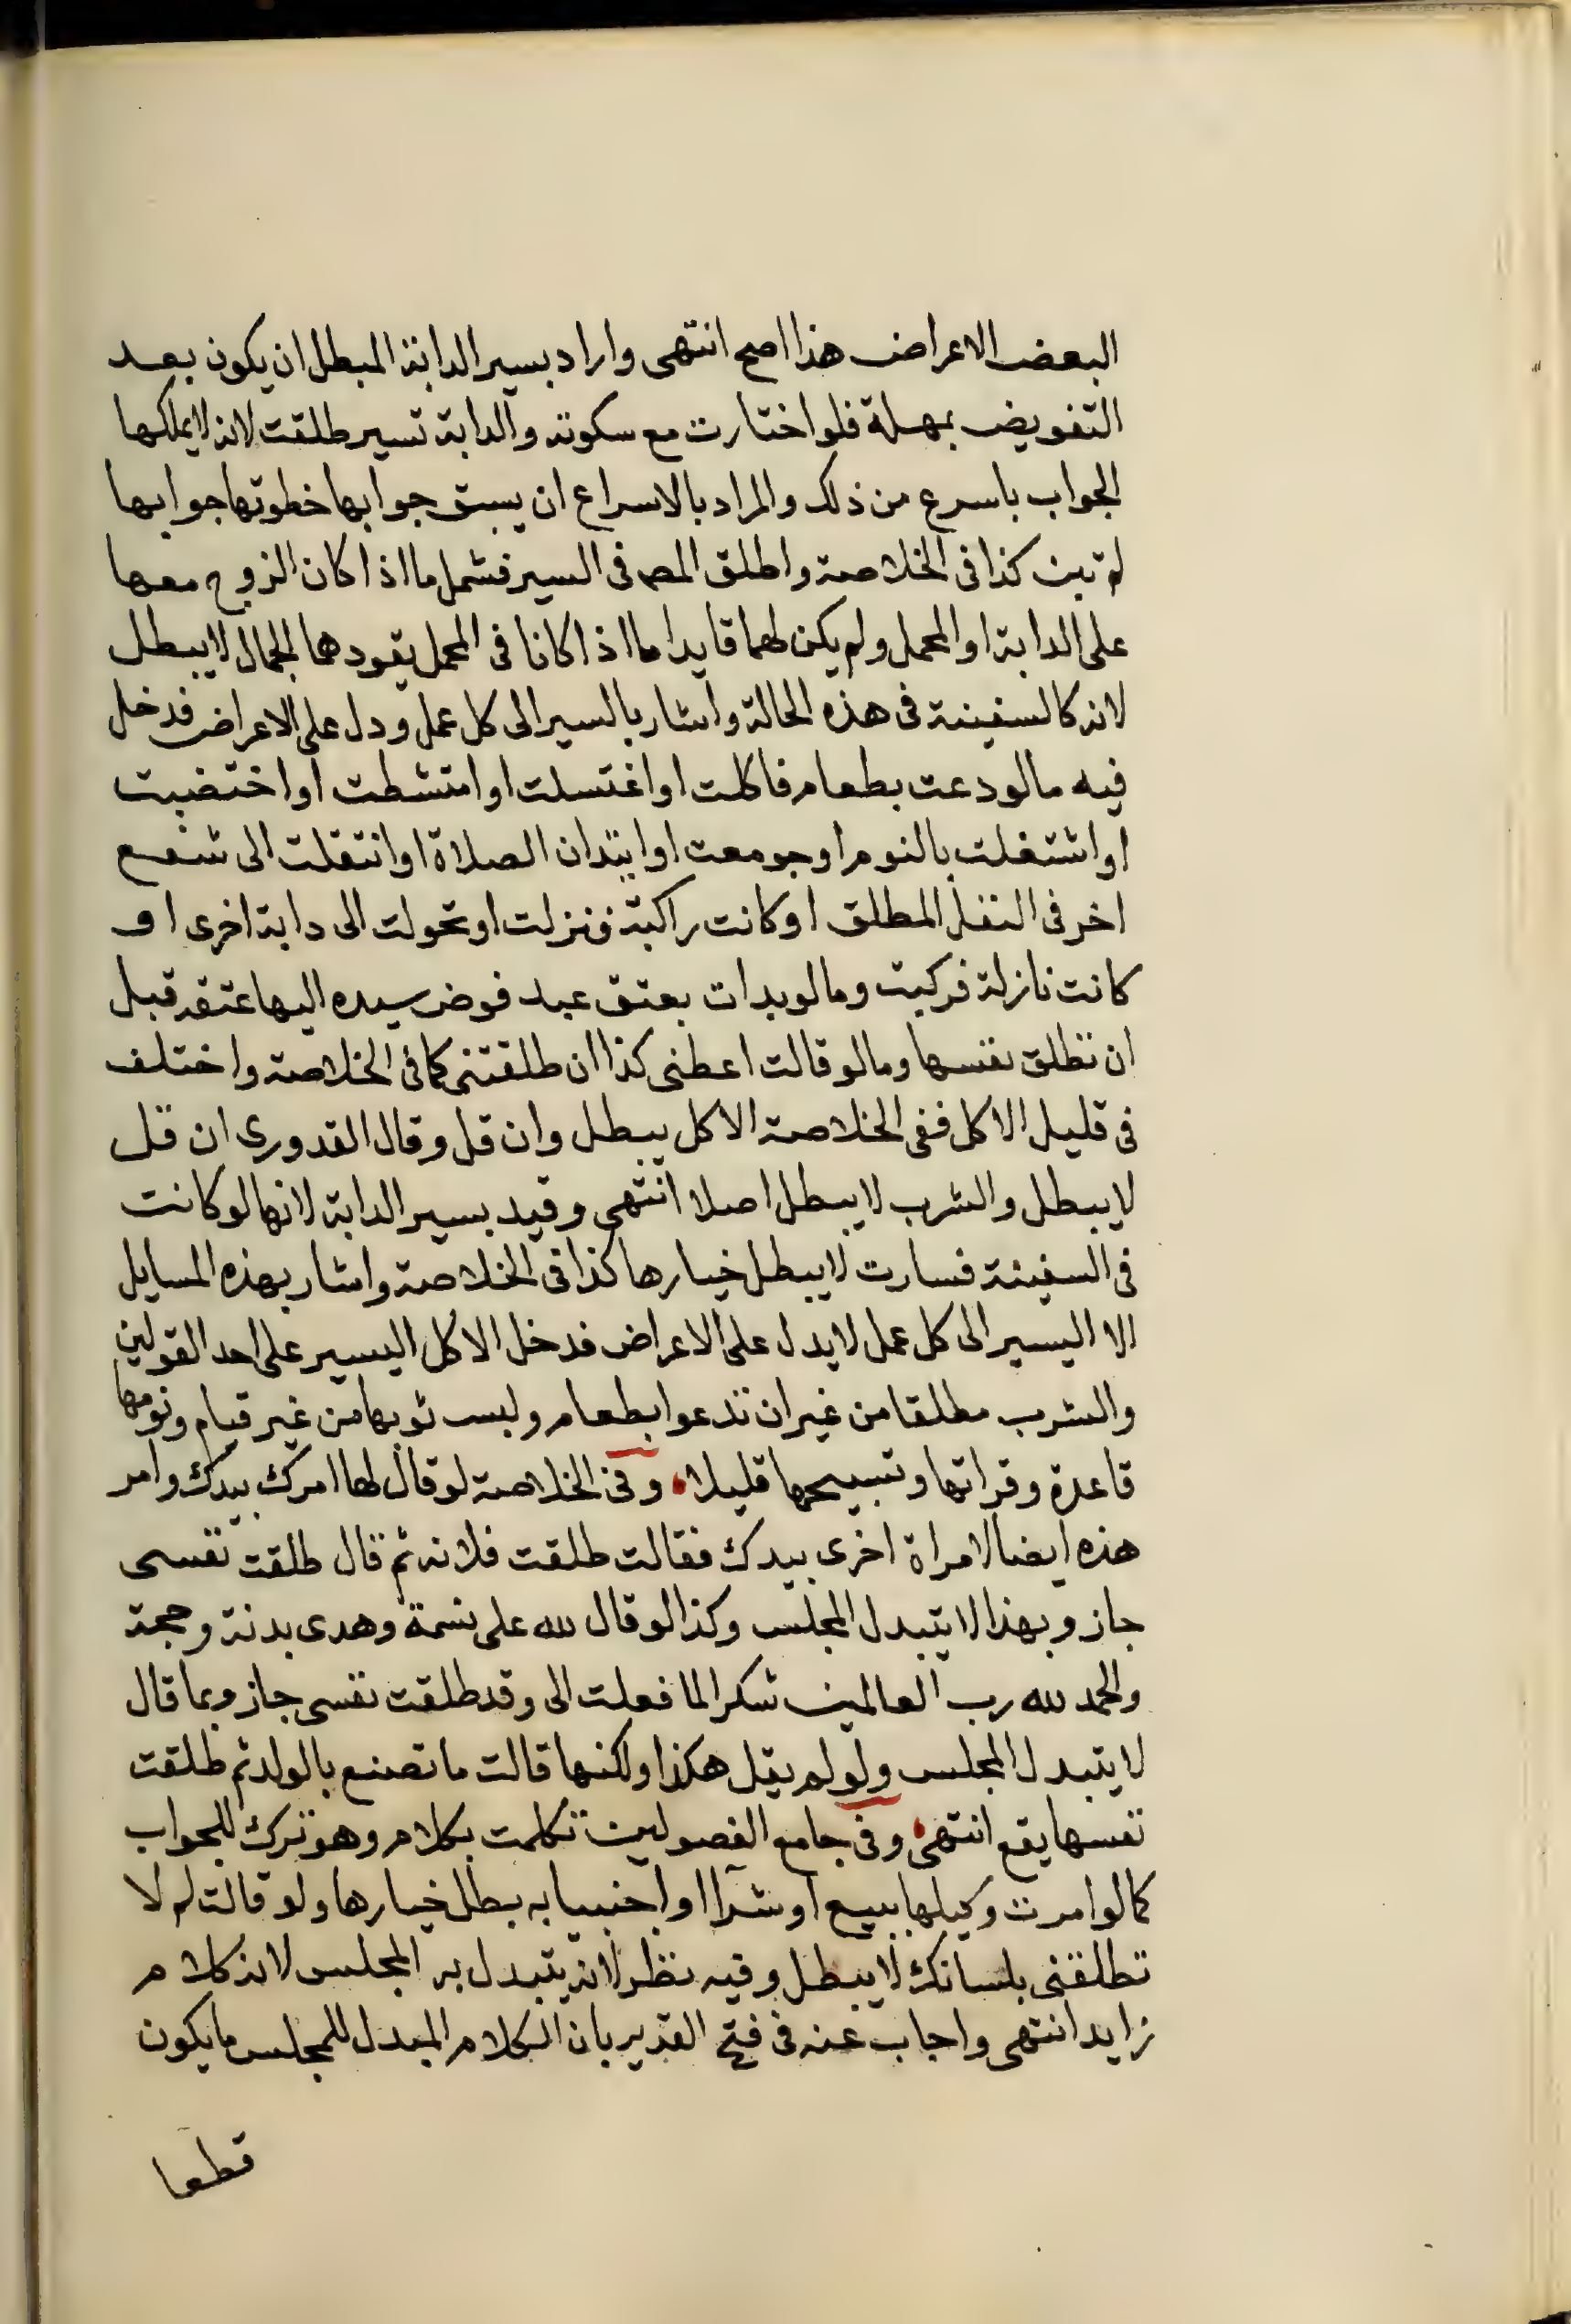 البعض الاعراض هذا اصح انتهى واراد بسير الدابة المبطل ان يكون بعد
التفويض بمهلة فلو اختارت مع سكوته والدابة تسير طلقت لانه لا يملكها
الجواب باسرع من ذلك والمراد بالاسراع ان يسبق جوابها خطوتها جوابها
لم تبن كذا فى الخلاصة واطلق المص فى السير فشمل ما اذا كان الزوج معها
على الدابة او المحمل ولم يكن لهما قايد اما اذا كانا فى المحمل يقودهما الجمال لا يبطل
لانه كالسفينة فى هذه الحالة واشار بالسير الى كل عمل ودل على الاعراض فدخل
فيه ما لو دعت بطعام فاكلت او اغتسلت او امتشطت او اختضبت
او اشتغلت بالنوم او جومعت او ابتدات الصلاة او انتقلت الى شفع
اخر فى النفل المطلق او كانت راكبة فنزلت او تحولت الى دابة اخرى او
كانت نازلة فركبت وما لو بدات بعتق عبد فوض سيده اليها عتقه قبل
ان تطلق نفسها وما لو قالت اعطنى كذا ان طلقتنى كما فى الخلاصة واختلف
فى قليل الاكل ففى الخلاصة الاكل يبطل وان قل وقال القدورى ان قل
لا يبطل والشرب لا يبطل اصلا انتهى وقيد بسير الدابة لانها لو كانت
فى السفينة فسارت لا يبطل خيارها كذا فى الخلاصة واشار بهذه المسايل
الا اليسير الى كل عمل لا يدل على الاعراض فدخل الاكل اليسير على احد القولين
والشرب مطلقا من غير ان تدعوا بطعام ولبس ثوبها من غير قيام ونومها
قاعدة وقراتها وتسبيحها قليلا وفى الخلاصة لو قال لها امرك بيدك وامر
هذه ايضا لامراة اخرى بيدك فقالت طلقت فلانه ثم قال طلقت نفسى
جاز وبهذا لا يتبدل المجلس وكذا لو قال لله على نسمة وهدى بدنة وحجة
والحمد لله رب العالمين شكرا لما فعلت الى وقد طلقت نفسى جاز وبما قال
لا يتبدل المجلس ولو لم يقل هكذا ولكنها قالت ما تصنع بالولد ثم طلقت
نفسها يقع انتهى وفى جامع الفصولين تكلمت بكلام وهو ترك للجواب
كما لو امرت وكيلها ببيع او شرآ او اجنبيا به بطل خيارها ولو قالت لم لا
تطلقنى بلسانك لا يبطل وفيه نظر لانه يتبدل به المجلس لانه كلام
زايد انتهى واجاب عنه فى فتح القدير بان الكلام المبدل للمجلس ما يكون
قطعا